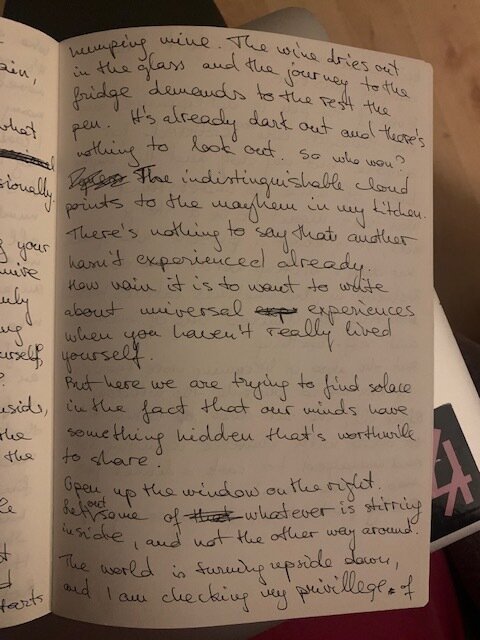 ain,
what
sionally.
g your
uly
urself,
?
inside,
the
the
d
starts
numping mine. The wine dries out
in the glass and the journey to the
fridge demands to the rest the
pen. It's already dark out and there's
nothing to look out. So who won?
The indistinguishable cloud
points to the mayhem in my kitchen.
There's nothing to say that another
hasn't experienced already.
How vain it is to want to write
about universal exp experiences
when you haven't really lived
yourself.
But here we are trying to find solace
in the fact that our minds have
something hidden that's worthwile
to share.
Open up the window on the right.
Let out some of that whatever is stirring
inside, and not the other way around.
The world is turning upside down,
and I am checking my privillege. of